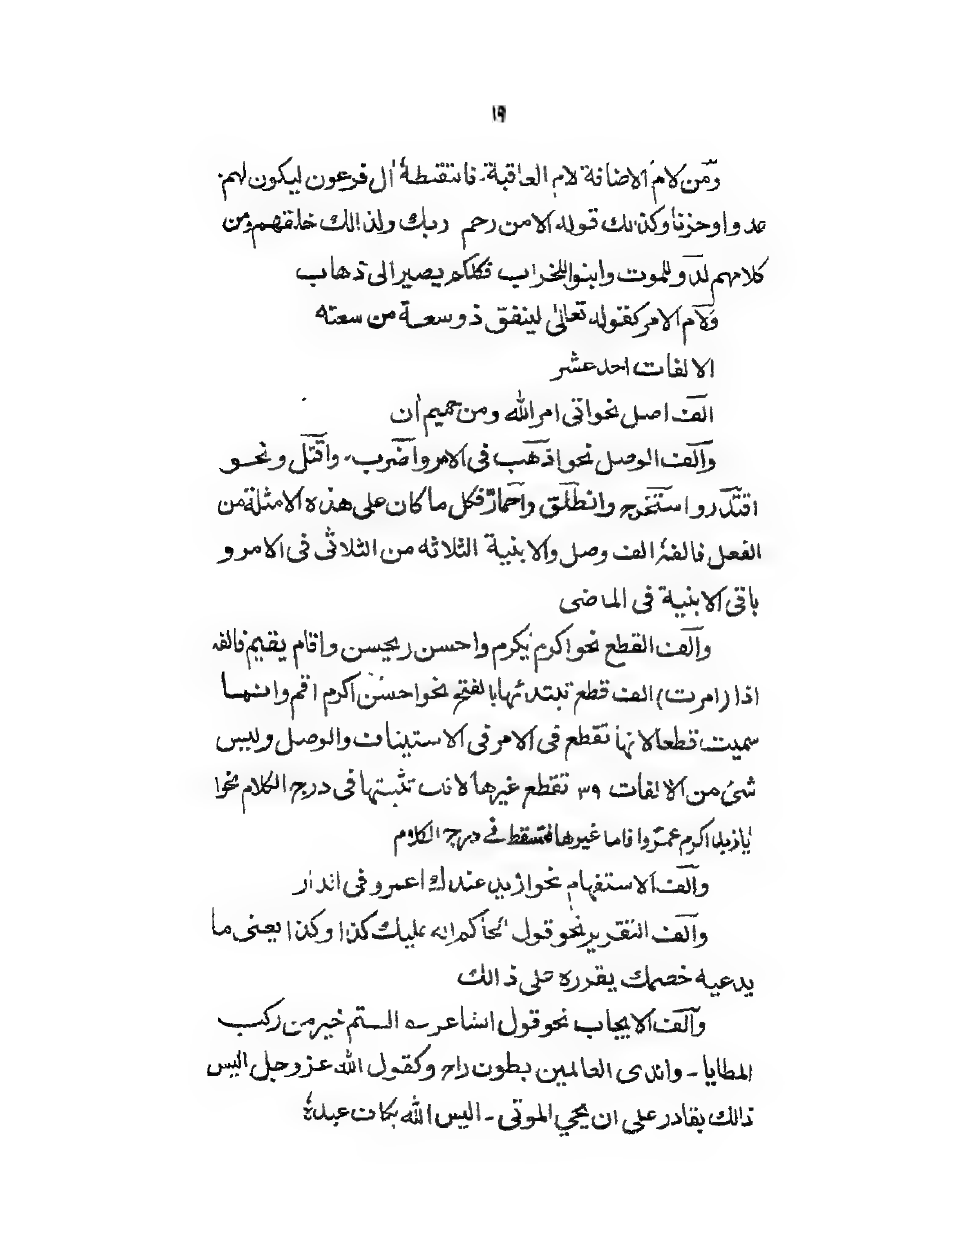 ١٩
ومن لام الاضافة لام العاقبة۔ فالتقطهٗ اٰل فرعون ليكون لهم
عدوا وحزنا وكذالك قوله الا من رحم ربك ولذالك خلقهم ومن
كلامهم لدوا للموت وابنوا للخراب فكلكم يصير الى ذهاب
ولام الامر كقوله تعالى لينفق ذو سعة من سعته
الالفات احد عشر
الف اصل نحو اتى امر الله ومن حميم اٰن
والف الوصل نحو اذهب فى الامر واضرب۔ واقتل ونحو
اقتدر واستخرج وانطلق واحمارّ فكل ما كان على هذه الامثلة من
الفعل فالفهٗ الف وصل والابنية الثلاثه من الثلاثى فى الامر و
باقى الابنية فى الماضى
والف القطع نحو اكرم يكرم واحسن يحسن واقام يقيم فالفه
اذا (امرت) الف قطع تبتدئها بالفتح نحو احسن اكرم اقم وانما
سميت قطعا لانها تقطع فى الامر فى الاستيناف والوصل وليس
شئ من الالفات ٣٩ تقطع غيرها لانك تثبتها فى درج الكلام نحو ا
يا زيد اكرم عمروا فاما غيرها فتسقط فى درج الكلام
والف الاستفهام نحو ازيد عندك اعمرو فى الدار
والف التقرير نحو قول الحاكم اله عليك كذا وكذا يعنى ما
يدعيه خصمك يقرره على ذالك
والف الايجاب نحو قول الشاعر ے الستم خير من ركب
المطايا ۔ واندى العالمين بطون راح وكقول الله عز وجل اليس
ذالك بقادر على ان يحي الموتى ۔ اليس الله بكاف عبدهٗ